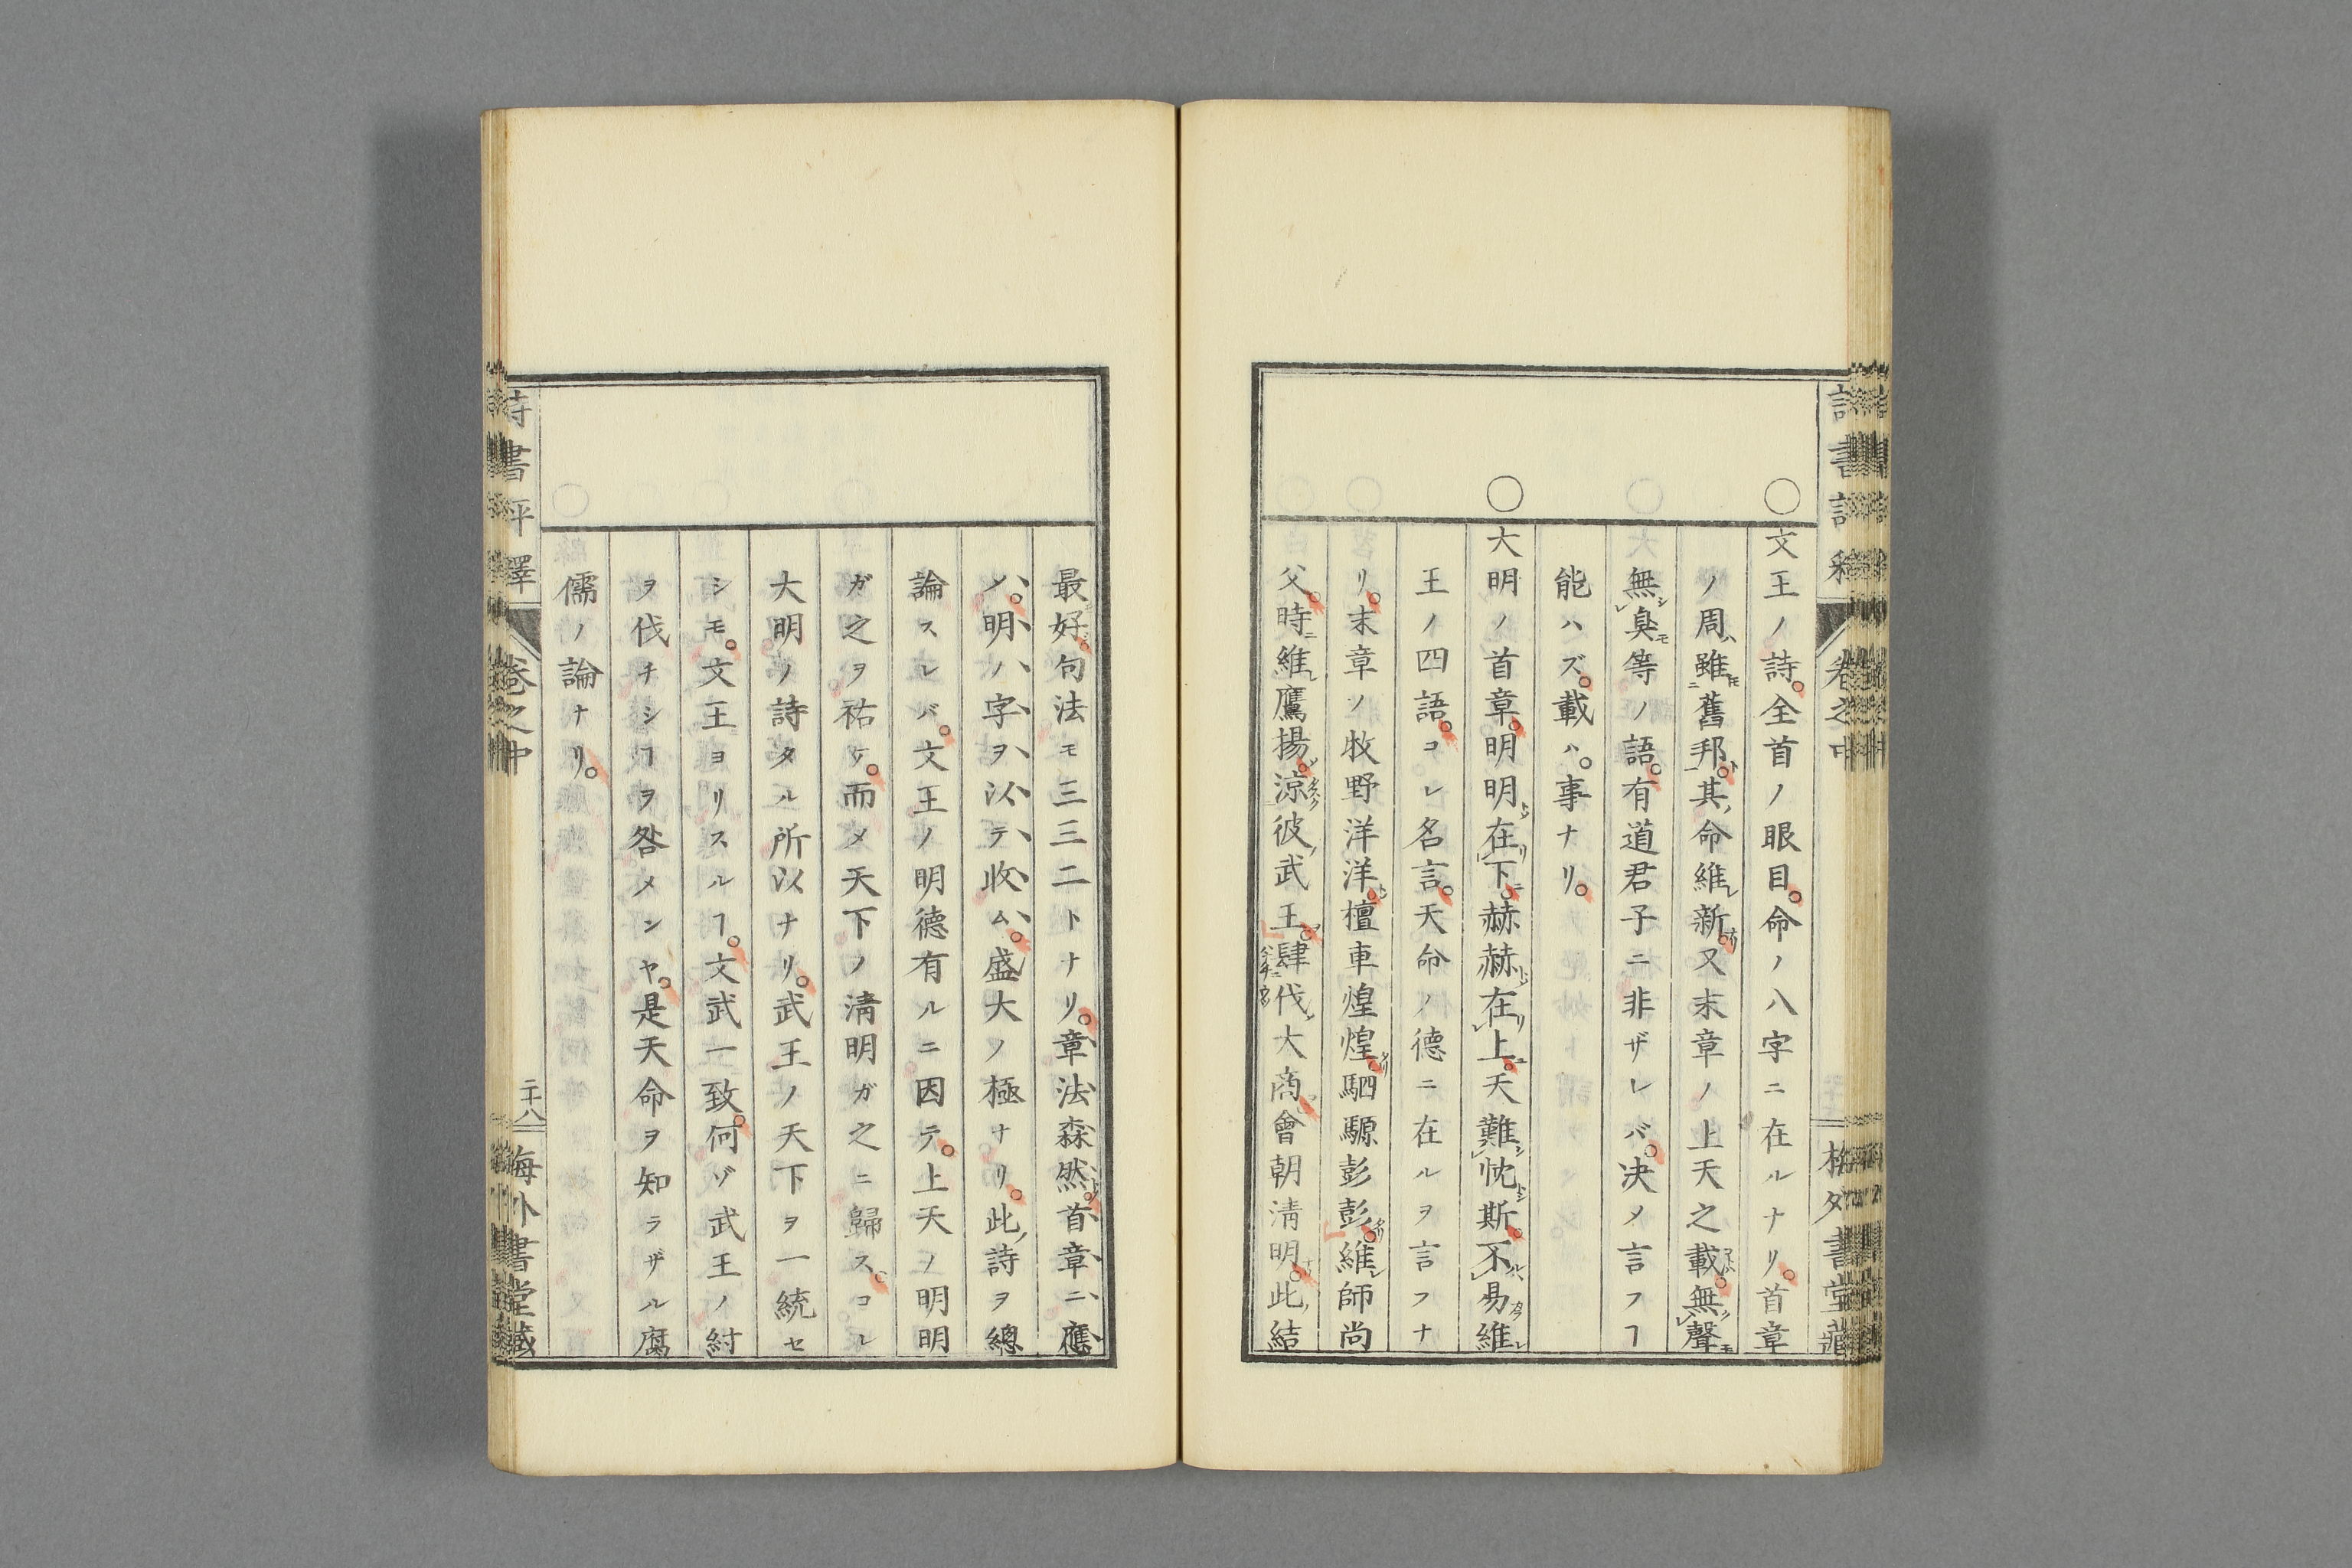 文王ノ詩。全首ノ眼目。命ノ八字ニ在ルナリ。首章
ノ周ハ雖モ舊邦ト。其ノ命維レ新ナリ。又末章ノ上天之載ハ。無ク聲モ
無シ臭モ等ノ語。有道君子ニ非ザレバ。决メ言フヿ
能ハズ。載ハ。事ナリ。
大明ノ首章。明明在リ下ニ。赫赫在リ上ニ。天難シ忱斯。不ル易カラ維レ
王ノ四語。コレ名言。天命ノ德ニ在ルヲ言フナ
リ。末章ノ牧野洋洋。檀車煌煌。駟騵彭彭。維レ師尚
父。時ニ維レ鷹揚。涼彼ノ武王。肆伐大商。會朝淸明。此ノ結
最好。句法モ三三二トナリ。章法森然。首章ニ應
ハ。明ハ字ヲ以テ收ム。盛大ノ極ナリ。此ノ詩ヲ總
論スレバ。文王ノ明德有ルニ因テ。上天ノ明明
ガ之ヲ祐ケ。而メ天下ノ淸明ガ之ニ歸ス。コレ
大明ノ詩タル所以ナリ。武王ノ天下ヲ一統セ
シモ。文王ヨリスルヿ。文武一致。何ゾ武王ノ紂
ヲ伐チシヿヲ咎メンヤ。是天命ヲ知ラザル腐
儒ノ論ナリ。
詩書評釋
卷之中
二十八
梅外書堂藏